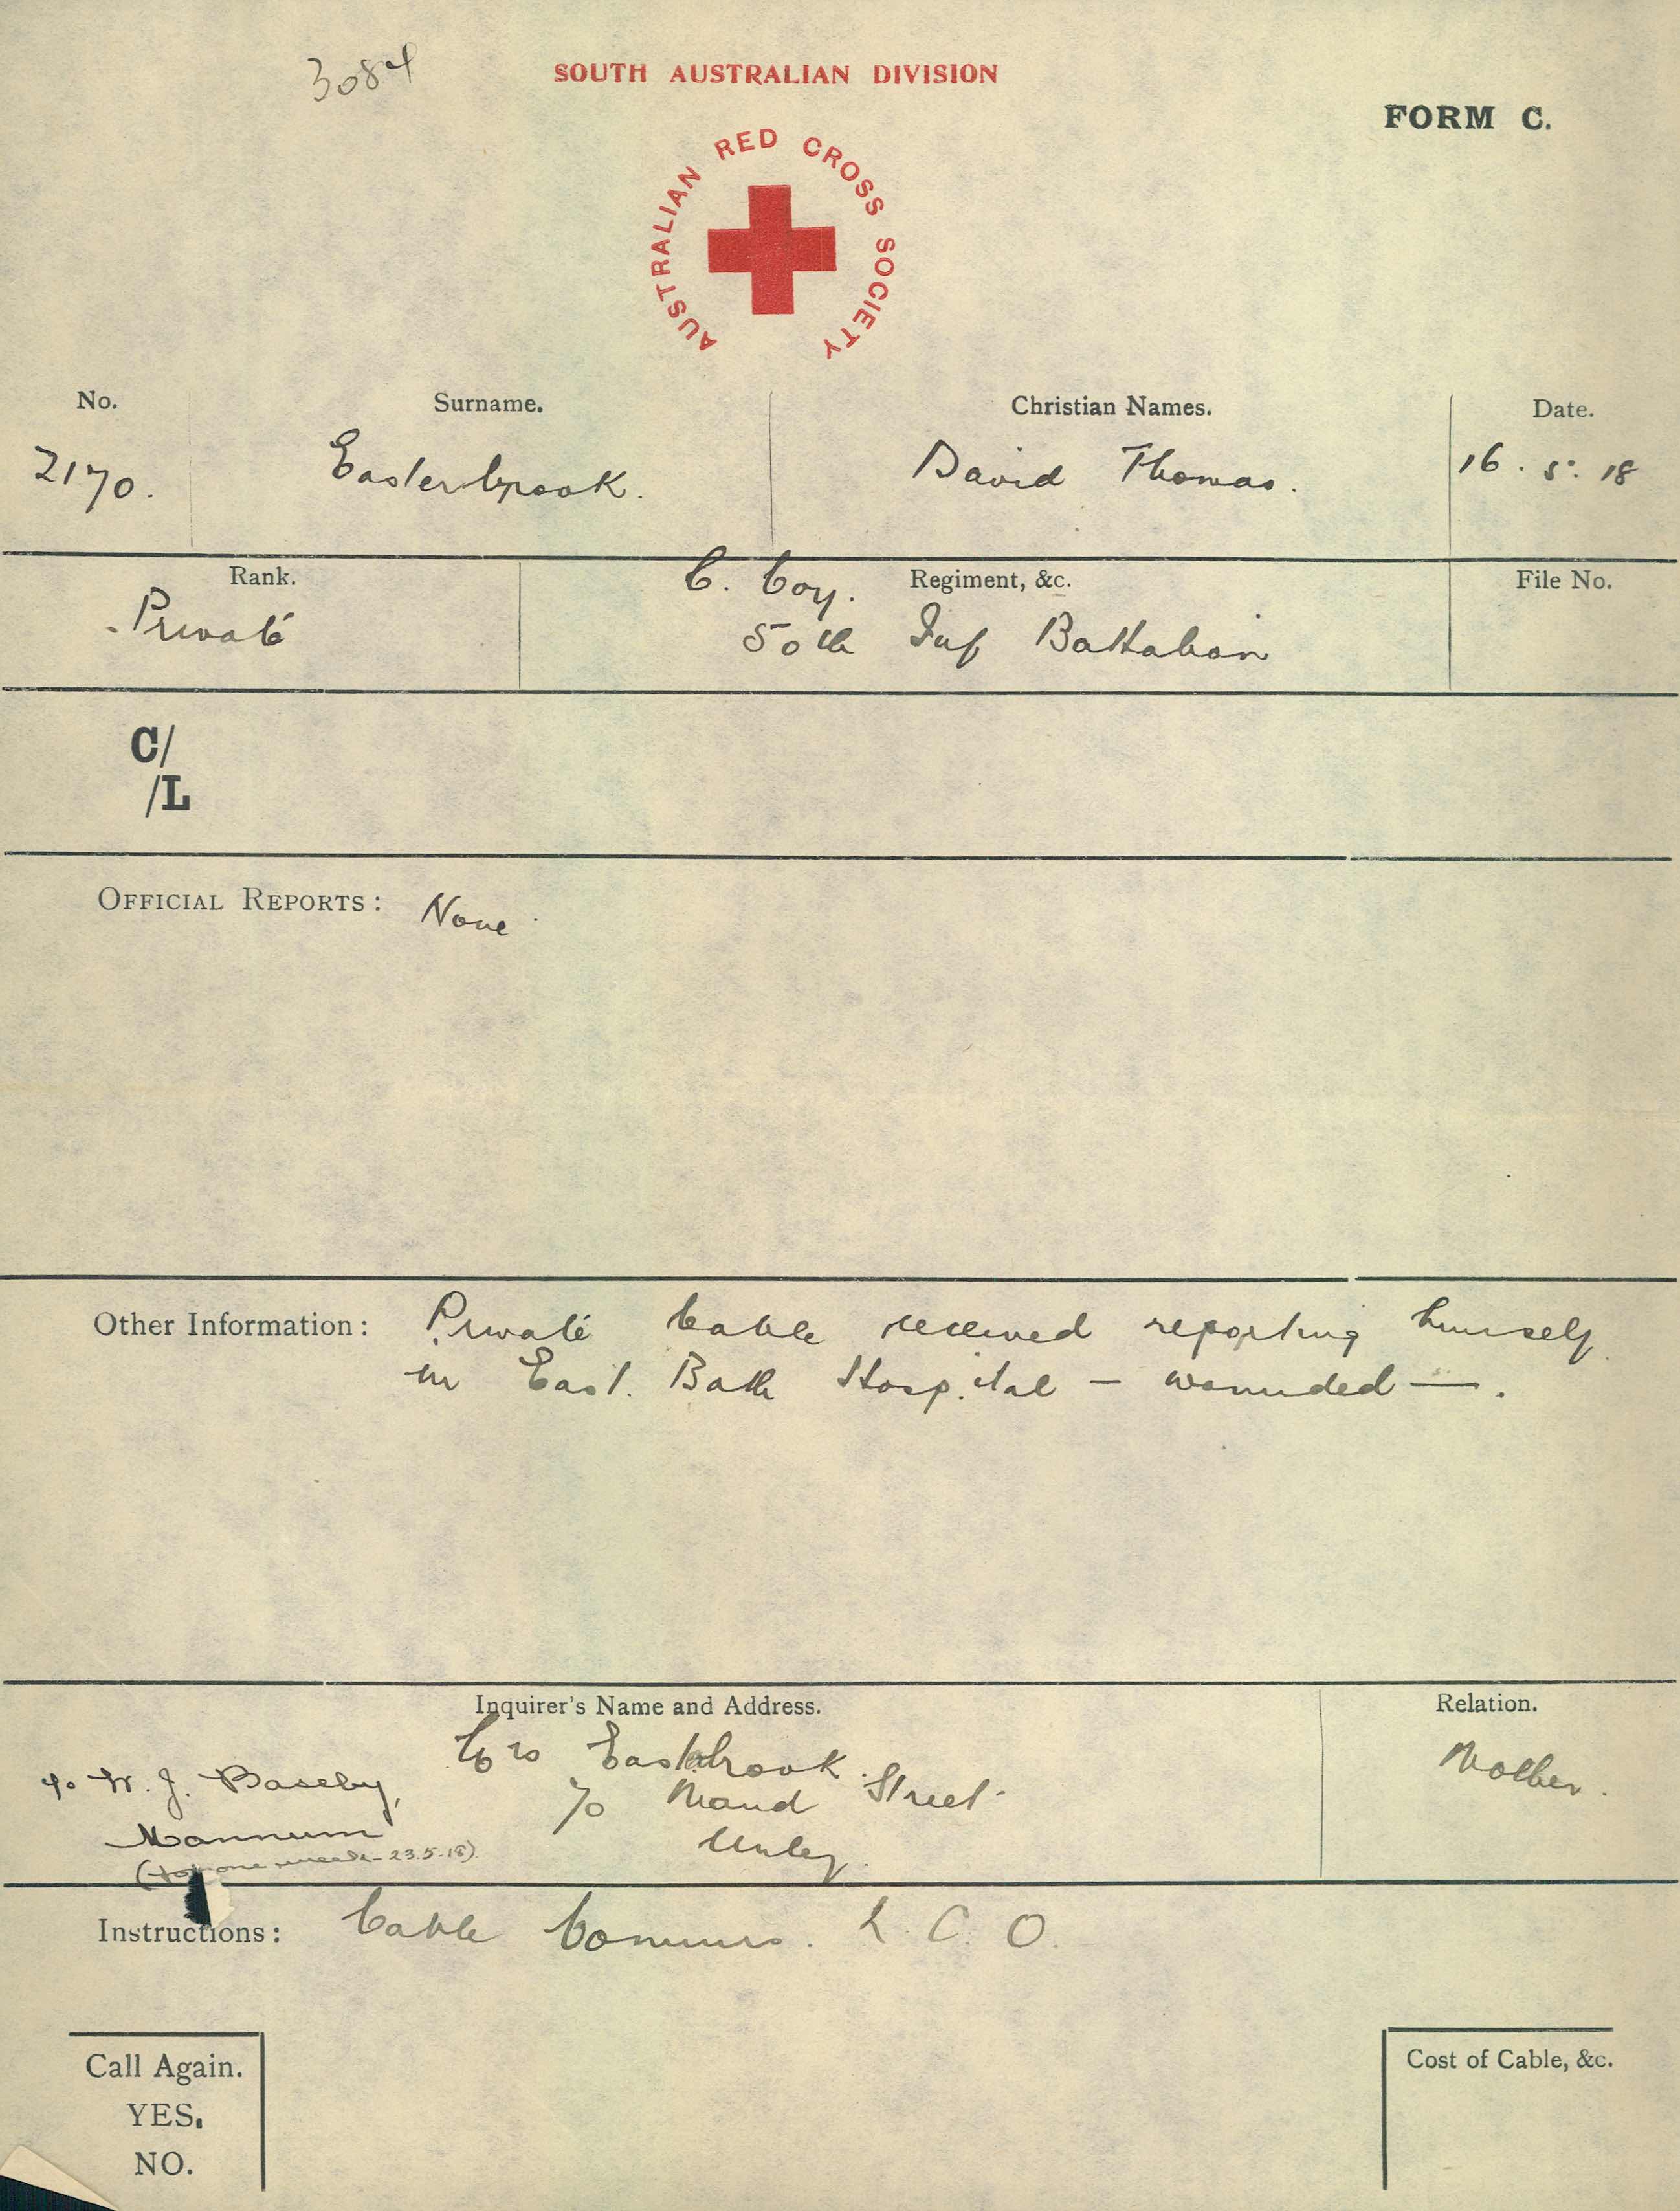 3084
SOUTH AUSTRALIAN DIVISION
FORM C.
AUSTRALIAN RED CROSS SOCIETY
No. Surname. Christian Names. Date.
2170. Easterbrook. David Thomas. 16. 5. 18
Rank. C. Coy. Regiment, &c. File No.
Private 50th Inf Battalion
C/
/L
OFFICIAL REPORTS: None
Other Information: Private Cable received reporting himself
in East. Bath Hospital — wounded —.
Inquirer's Name and Address. Relation.
Mrs Eastbrook Mother.
c/o W. J. Baseby, 70 Maud Street
Mannum Unley.
(for one week - 23.5.18)
Instructions: Cable Commrs. L. C. O.
Call Again. Cost of Cable, &c.
YES.
NO.